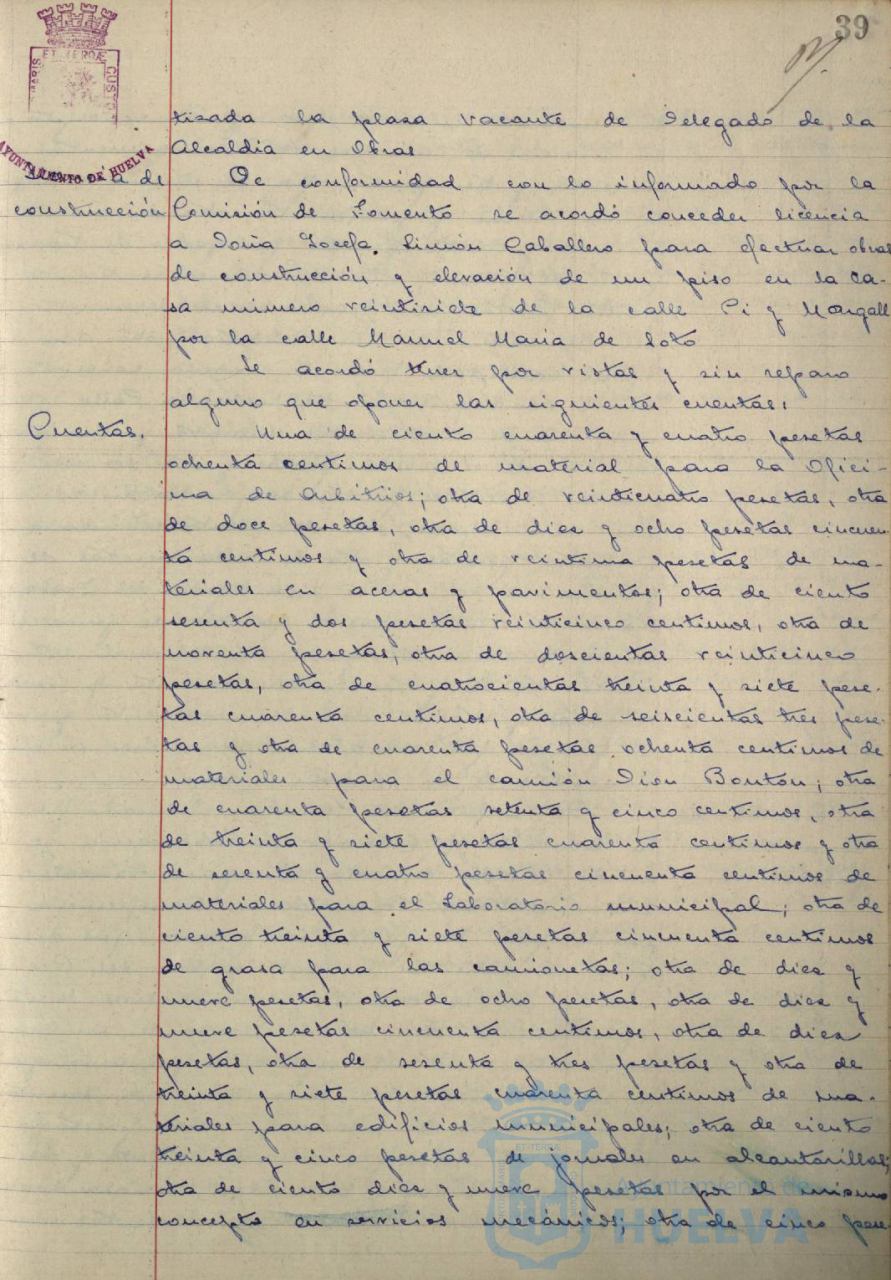 39
ET TERRÆ CUSTO
AYUNTAMIENTO DE HUELVA
tizada la plaza vacante de Delegado de la
Alcaldia en Obras
Licencia de
construcción
De conformidad con lo informado por la
Comisión de Fomento se acordó conceder licencia
a Doña Josefa Limón Caballero para efectuar obras
de construcción y elevación de un piso en la ca-
sa número veintisiete de la calle Pi y Margall
por la calle Manuel Maria de Soto
Se acordó tener por vistas y sin reparo
alguno que oponer las siguientes cuentas:
Cuentas.
Una de ciento cuarenta y cuatro pesetas
ochenta centimos de material para la Ofici-
na de Arbitrios; otra de veinticuatro pesetas, otra
de doce pesetas, otra de diez y ocho pesetas cincuen-
ta centimos y otra de veintiuna pesetas de ma-
teriales en aceras y pavimentos; otra de ciento
sesenta y dos pesetas veinticinco centimos, otra de
noventa pesetas, otra de doscientas veinticinco
pesetas, otra de cuatrocientas treinta y siete pese-
tas cuarenta centimos, otra de seiscientas tres pese-
tas y otra de cuarenta pesetas ochenta centimos de
materiales para el camión Dion Bouton; otra
de cuarenta pesetas setenta y cinco centimos, otra
de treinta y siete pesetas cuarenta centimos y otra
de sesenta y cuatro pesetas cincuenta centimos de
materiales para el Laboratorio municipal; otra de
ciento treinta y siete pesetas cincuenta centimos
de grasa para las camionetas; otra de diez y
nueve pesetas, otra de ocho pesetas, otra de diez y
nueve pesetas cincuenta centimos, otra de diez
pesetas, otra de sesenta y tres pesetas y otra de
treinta y siete pesetas cuarenta centimos de ma-
teriales para edificios municipales; otra de ciento
treinta y cinco pesetas de jornales en alcantarillas;
otra de ciento diez y nueve pesetas por el mismo
concepto en servicios mecánicos; otra de cinco pese-
Ayuntamiento de
HUELVA